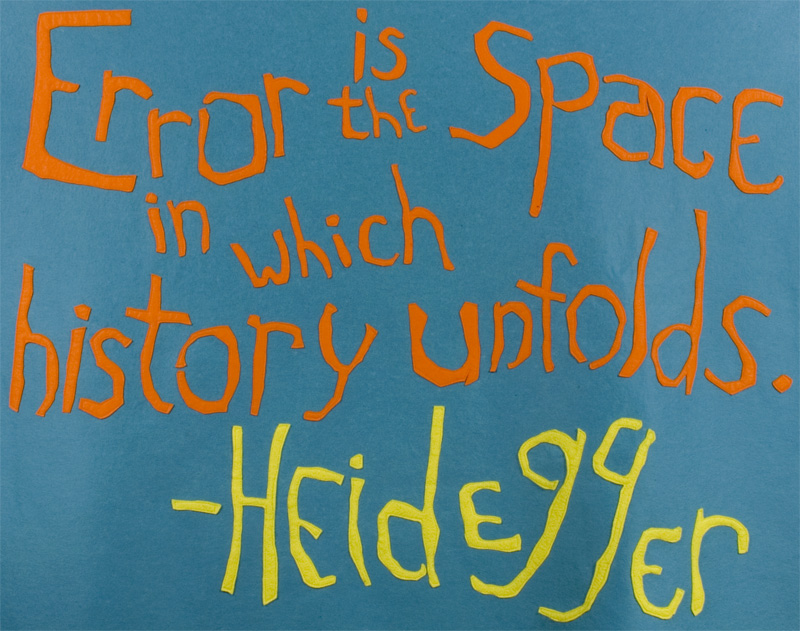 Error is the Space
in which
history unfolds.
-Heidegger